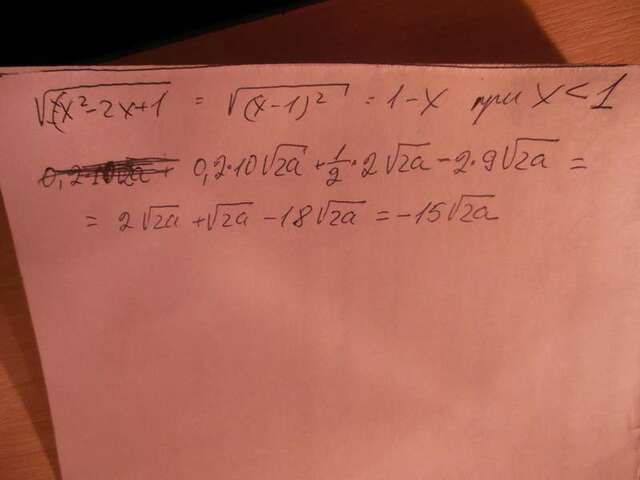 √x²-2x+1 = √(x-1)² = 1-x при x<1
0,2·10√2a + 1/2·2√2a - 2·9√2a =
= 2√2a + √2a - 18√2a = -15√2a